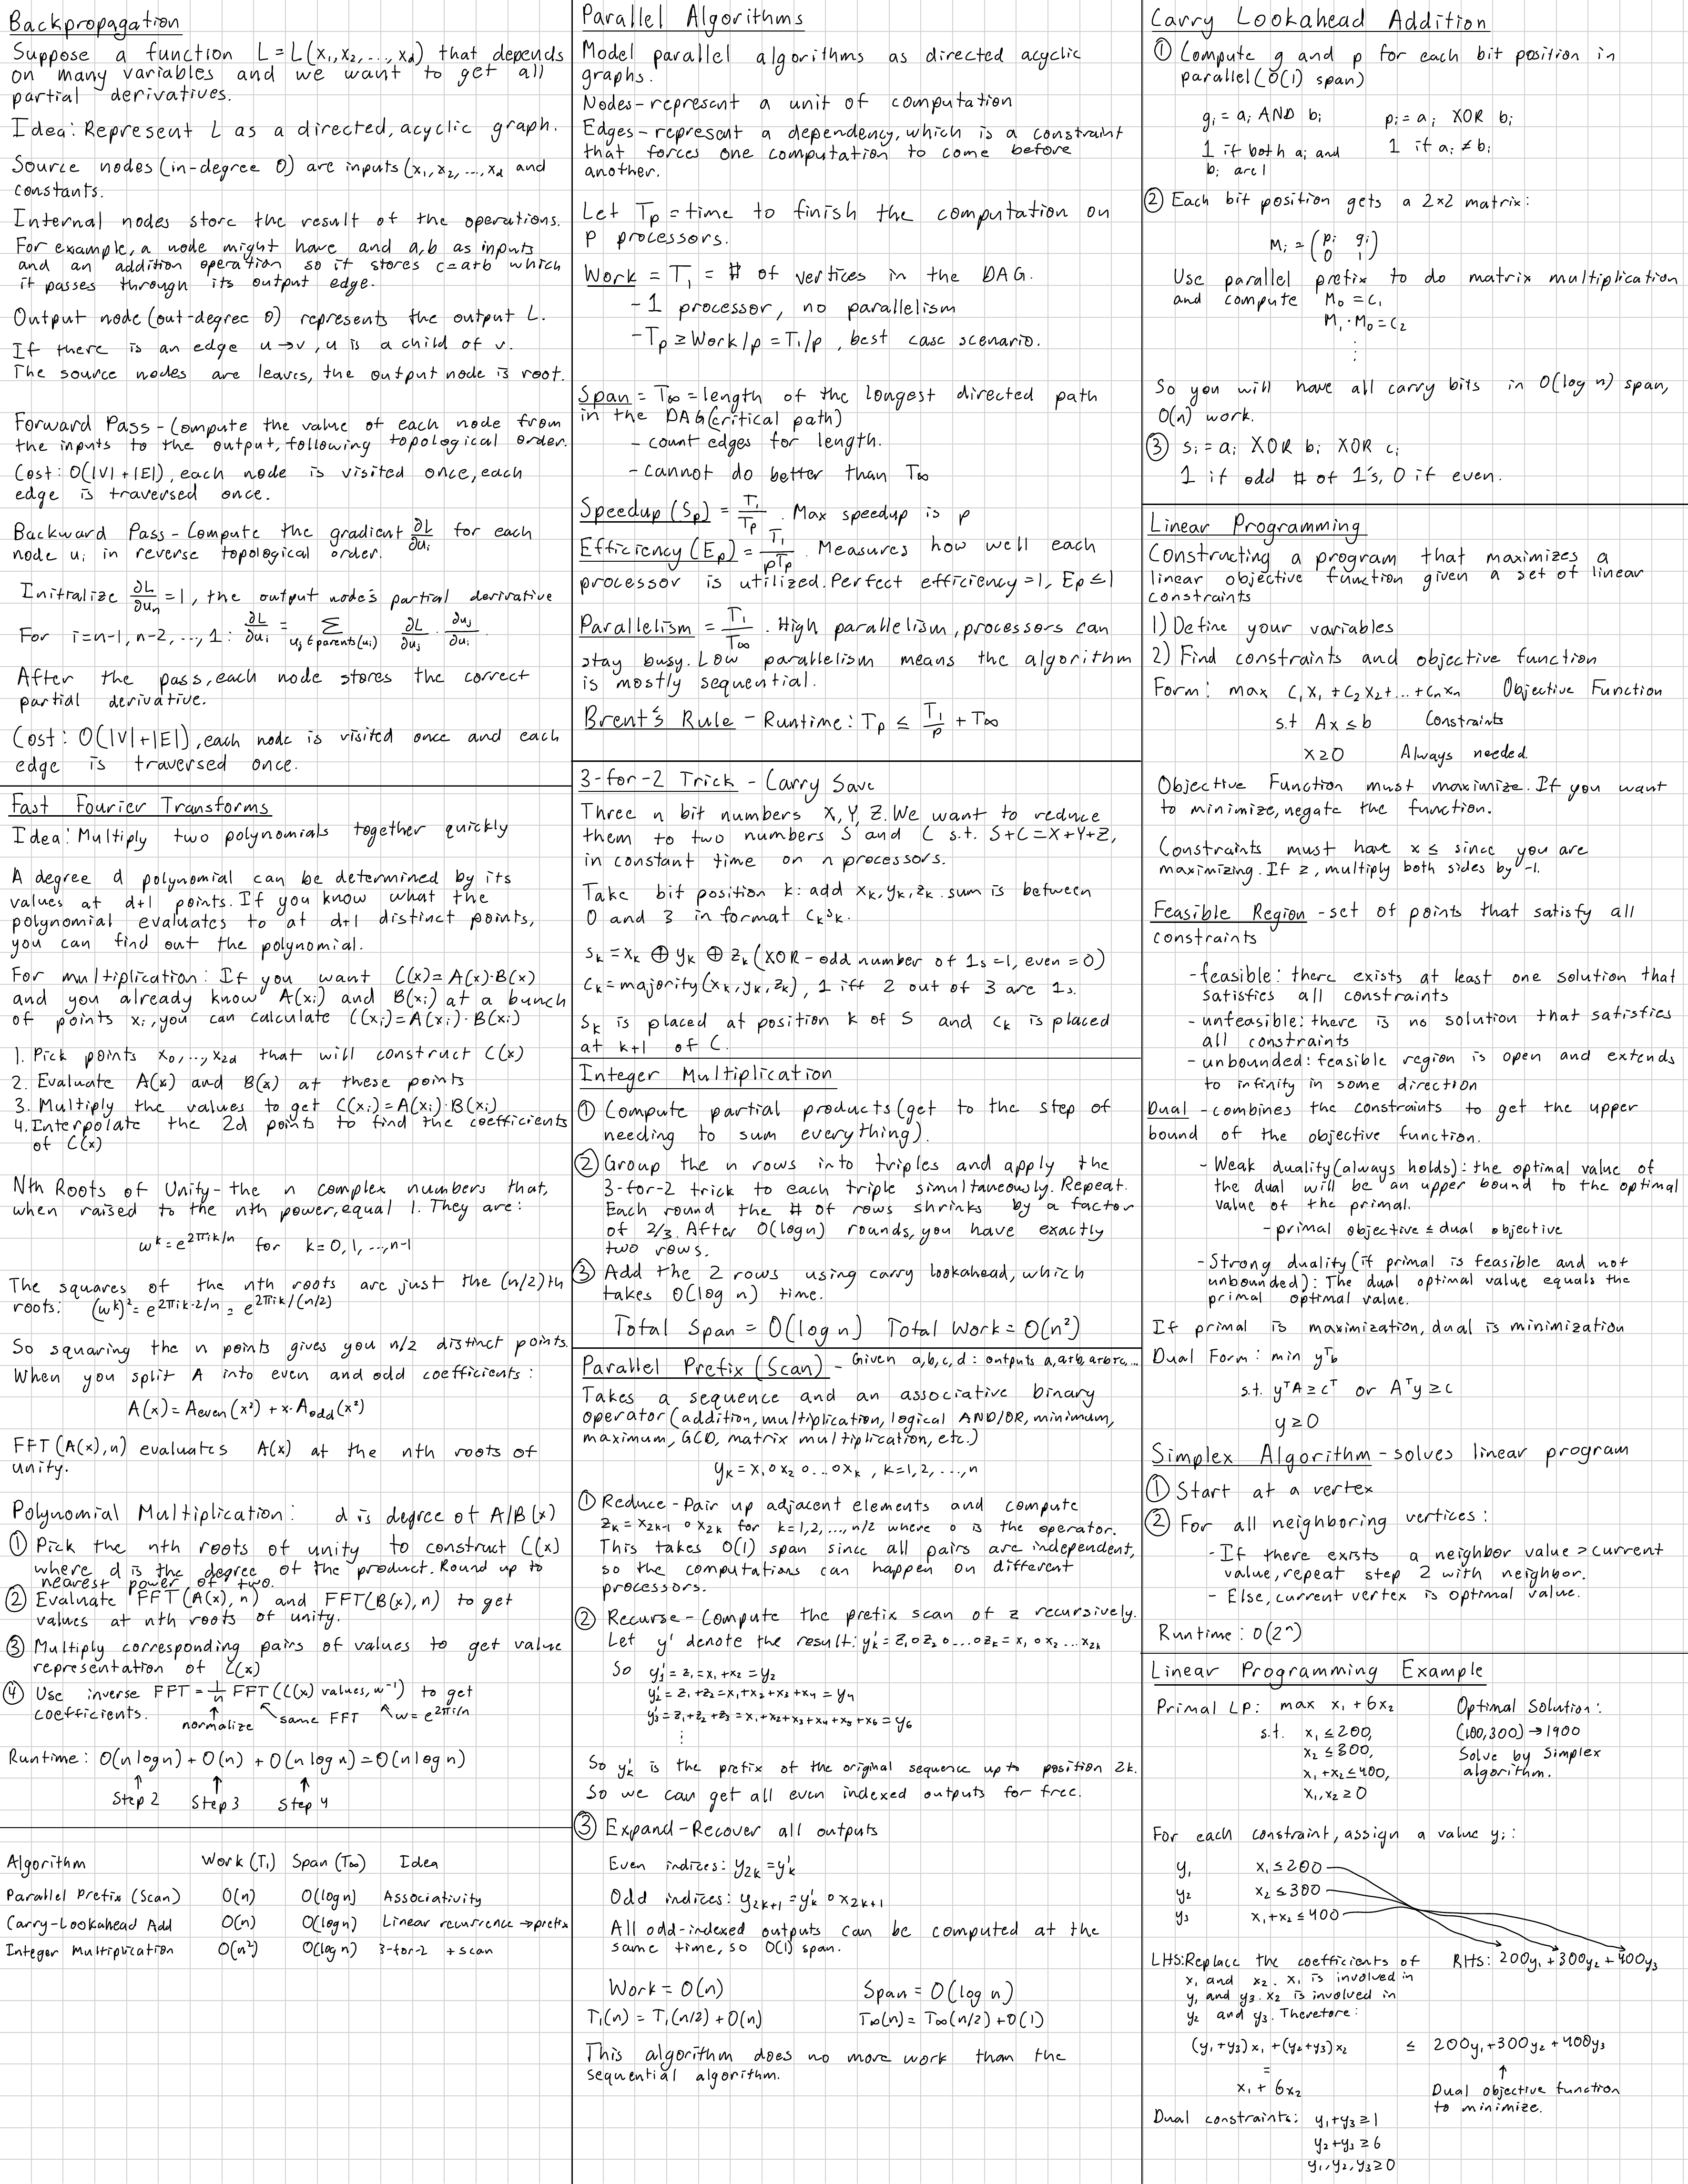 Backpropagation
Suppose a function L=L(x₁,x₂,...,x_d) that depends
on many variables and we want to get all
partial derivatives.
Idea: Represent L as a directed, acyclic graph.
Source nodes (in-degree 0) are inputs (x₁,x₂,...,x_d and
constants.
Internal nodes store the result of the operations.
For example, a node might have and a,b as inputs
and an addition operation so it stores c=a+b which
it passes through its output edge.
Output node (out-degree 0) represents the output L.
If there is an edge u→v, u is a child of v.
The source nodes are leaves, the output node is root.
Forward Pass - Compute the value of each node from
the inputs to the output, following topological order.
Cost: O(|V|+|E|), each node is visited once, each
edge is traversed once.
Backward Pass - Compute the gradient ∂L/∂uᵢ for each
node uᵢ in reverse topological order.
Initialize ∂L/∂uₙ = 1, the output node's partial derivative
For i=n-1, n-2, ..., 1: ∂L/∂uᵢ = Σ_{uⱼ∈parents(uᵢ)} ∂L/∂uⱼ · ∂uⱼ/∂uᵢ
After the pass, each node stores the correct
partial derivative.
Cost: O(|V|+|E|), each node is visited once and each
edge is traversed once.
Fast Fourier Transforms
Idea: Multiply two polynomials together quickly
A degree d polynomial can be determined by its
values at d+1 points. If you know what the
polynomial evaluates to at d+1 distinct points,
you can find out the polynomial.
For multiplication: If you want C(x)=A(x)·B(x)
and you already know A(xᵢ) and B(xᵢ) at a bunch
of points xᵢ, you can calculate C(xᵢ)=A(xᵢ)·B(xᵢ)
1. Pick points x₀,...,x₂d that will construct C(x)
2. Evaluate A(x) and B(x) at these points
3. Multiply the values to get C(xᵢ)=A(xᵢ)·B(xᵢ)
4. Interpolate the 2d points to find the coefficients
of C(x)
Nth Roots of Unity - the n complex numbers that,
when raised to the nth power, equal 1. They are:
ω^k = e^(2πik/n) for k=0,1,...,n-1
The squares of the nth roots are just the (n/2)th
roots: (ω^k)² = e^(2πik·2/n) = e^(2πik/(n/2))
So squaring the n points gives you n/2 distinct points.
When you split A into even and odd coefficients:
A(x) = A_even(x²) + x·A_odd(x²)
FFT(A(x),n) evaluates A(x) at the nth roots of
unity.
Polynomial Multiplication: d is degree of A/B(x)
① Pick the nth roots of unity to construct C(x)
where d is the degree of the product. Round up to
nearest power of two.
② Evaluate FFT(A(x),n) and FFT(B(x),n) to get
values at nth roots of unity.
③ Multiply corresponding pairs of values to get value
representation of C(x)
④ Use inverse FFT = 1/n FFT(C(x) values, ω⁻¹) to get
coefficients. ↑ normalize ↖ same FFT ↖ ω=e^(2πi/n)
Runtime: O(nlogn) + O(n) + O(nlogn) = O(nlogn)
↑ ↑ ↑
Step 2 Step 3 Step 4
Algorithm Work (T₁) Span (T∞) Idea
Parallel Prefix (Scan) O(n) O(logn) Associativity
Carry-Lookahead Add O(n) O(logn) Linear recurrence → prefix
Integer Multiplication O(n²) O(logn) 3-for-2 + scan
Parallel Algorithms
Model parallel algorithms as directed acyclic
graphs.
Nodes - represent a unit of computation
Edges - represent a dependency, which is a constraint
that forces one computation to come before
another.
Let Tp = time to finish the computation on
p processors.
Work = T₁ = # of vertices in the DAG.
- 1 processor, no parallelism
- Tp ≥ Work/p = T₁/p, best case scenario.
Span = T∞ = length of the longest directed path
in the DAG (critical path)
- count edges for length.
- cannot do better than T∞
Speedup (Sp) = T₁/Tp. Max speedup is p
Efficiency (Ep) = T₁/pTp. Measures how well each
processor is utilized. Perfect efficiency = 1, Ep ≤ 1
Parallelism = T₁/T∞. High parallelism, processors can
stay busy. Low parallelism means the algorithm
is mostly sequential.
Brent's Rule - Runtime: Tp ≤ T₁/p + T∞
3-for-2 Trick - Carry Save
Three n bit numbers X, Y, Z. We want to reduce
them to two numbers S and C s.t. S+C=X+Y+Z,
in constant time on n processors.
Take bit position k: add xₖ, yₖ, zₖ. sum is between
0 and 3 in format cₖsₖ.
sₖ = xₖ ⊕ yₖ ⊕ zₖ (XOR - odd number of 1s = 1, even = 0)
cₖ = majority(xₖ, yₖ, zₖ), 1 iff 2 out of 3 are 1s.
sₖ is placed at position k of S and cₖ is placed
at k+1 of C.
Integer Multiplication
① Compute partial products (get to the step of
needing to sum everything).
② Group the n rows into triples and apply the
3-for-2 trick to each triple simultaneously. Repeat.
Each round the # of rows shrinks by a factor
of 2/3. After O(logn) rounds, you have exactly
two rows.
③ Add the 2 rows using carry lookahead, which
takes O(log n) time.
Total Span = O(logn) Total Work = O(n²)
Parallel Prefix (Scan) - Given a,b,c,d: outputs a,a+b,a+b+c,...
Takes a sequence and an associative binary
operator (addition, multiplication, logical AND/OR, minimum,
maximum, GCD, matrix multiplication, etc.)
yₖ = x₁ o x₂ o ... o xₖ, k=1,2,...,n
① Reduce - Pair up adjacent elements and compute
zₖ = x₂ₖ₋₁ o x₂ₖ for k=1,2,...,n/2 where o is the operator.
This takes O(1) span since all pairs are independent,
so the computations can happen on different
processors.
② Recurse - Compute the prefix scan of z recursively.
Let y' denote the result: y'ₖ = z₁ o z₂ o ... o zₖ = x₁ o x₂ ... x₂ₖ
So y'₁ = z₁ = x₁+x₂ = y₂
y'₂ = z₁+z₂ = x₁+x₂+x₃+x₄ = y₄
y'₃ = z₁+z₂+z₃ = x₁+x₂+x₃+x₄+x₅+x₆ = y₆
⋮
So y'ₖ is the prefix of the original sequence up to position 2k.
So we can get all even indexed outputs for free.
③ Expand - Recover all outputs
Even indices: y₂ₖ = y'ₖ
Odd indices: y₂ₖ₊₁ = y'ₖ o x₂ₖ₊₁
All odd-indexed outputs can be computed at the
same time, so O(1) span.
Work = O(n) Span = O(log n)
T₁(n) = T₁(n/2) + O(n) T∞(n) = T∞(n/2) + O(1)
This algorithm does no more work than the
sequential algorithm.
Carry Lookahead Addition
① Compute g and p for each bit position in
parallel (O(1) span)
gᵢ = aᵢ AND bᵢ pᵢ = aᵢ XOR bᵢ
1 if both aᵢ and 1 if aᵢ ≠ bᵢ
bᵢ are 1
② Each bit position gets a 2×2 matrix:
Mᵢ = (pᵢ gᵢ
0 1)
Use parallel prefix to do matrix multiplication
and compute M₀ = c₁
M₁·M₀ = c₂
⋮
So you will have all carry bits in O(log n) span,
O(n) work.
③ sᵢ = aᵢ XOR bᵢ XOR cᵢ
1 if odd # of 1's, 0 if even.
Linear Programming
Constructing a program that maximizes a
linear objective function given a set of linear
constraints
1) Define your variables
2) Find constraints and objective function
Form: max c₁x₁ + c₂x₂+...+cₙxₙ Objective Function
s.t Ax ≤ b Constraints
x≥0 Always needed.
Objective Function must maximize. If you want
to minimize, negate the function.
Constraints must have x ≤ since you are
maximizing. If ≥, multiply both sides by -1.
Feasible Region - set of points that satisfy all
constraints
- feasible: there exists at least one solution that
satisfies all constraints
- unfeasible: there is no solution that satisfies
all constraints
- unbounded: feasible region is open and extends
to infinity in some direction
Dual - combines the constraints to get the upper
bound of the objective function.
- Weak duality (always holds): the optimal value of
the dual will be an upper bound to the optimal
value of the primal.
- primal objective ≤ dual objective
- Strong duality (if primal is feasible and not
unbounded): The dual optimal value equals the
primal optimal value.
If primal is maximization, dual is minimization
Dual Form: min yᵀb
s.t. yᵀA ≥ cᵀ or Aᵀy ≥ c
y≥0
Simplex Algorithm - solves linear program
① Start at a vertex
② For all neighboring vertices:
- If there exists a neighbor value > current
value, repeat step 2 with neighbor.
- Else, current vertex is optimal value.
Runtime: O(2ⁿ)
Linear Programming Example
Primal LP: max x₁ + 6x₂ Optimal Solution:
s.t. x₁ ≤ 200, (100,300) → 1900
x₂ ≤ 300, Solve by Simplex
x₁ + x₂ ≤ 400, algorithm.
x₁, x₂ ≥ 0
For each constraint, assign a value yᵢ:
y₁ x₁ ≤ 200
y₂ x₂ ≤ 300
y₃ x₁+x₂ ≤ 400
LHS: Replace the coefficients of RHS: 200y₁ + 300y₂ + 400y₃
x₁ and x₂. x₁ is involved in
y₁ and y₃. x₂ is involved in
y₂ and y₃. Therefore:
(y₁+y₃)x₁ + (y₂+y₃)x₂ ≤ 200y₁+300y₂+400y₃
= ↑
x₁ + 6x₂ Dual objective function
to minimize.
Dual constraints: y₁+y₃ ≥ 1
y₂+y₃ ≥ 6
y₁,y₂,y₃ ≥ 0